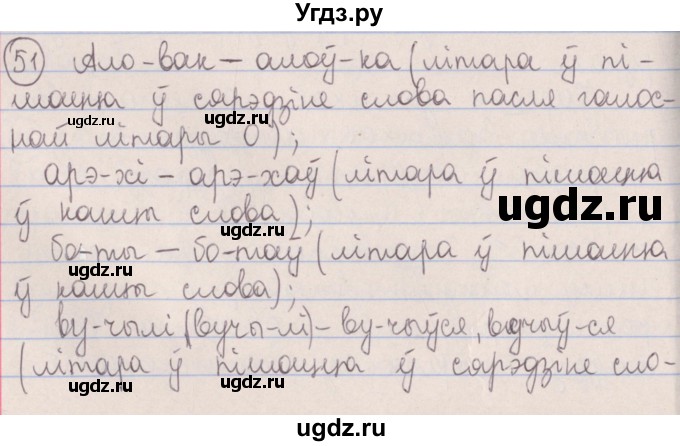 Угдз.ру
51 Ало-вак – алоў-ка (літара ў пі-
шацца ў сярэдзіне слова пасля галос-
най літары О);
арэ-хі – арэ-хаў (літара ў пішацца
ў канцы слова);
бо-ты – бо-таў (літара ў пішацца
ў канцы слова);
ву-чылі (вучы-лі) – ву-чыўся, вучыў-ся
(літара ў пішацца ў сярэдзіне сло-
ugdz.ru
ugdz.ru
ugdz.ru
ugdz.ru
ugdz.ru
ugdz.ru
ugdz.ru
ugdz.ru